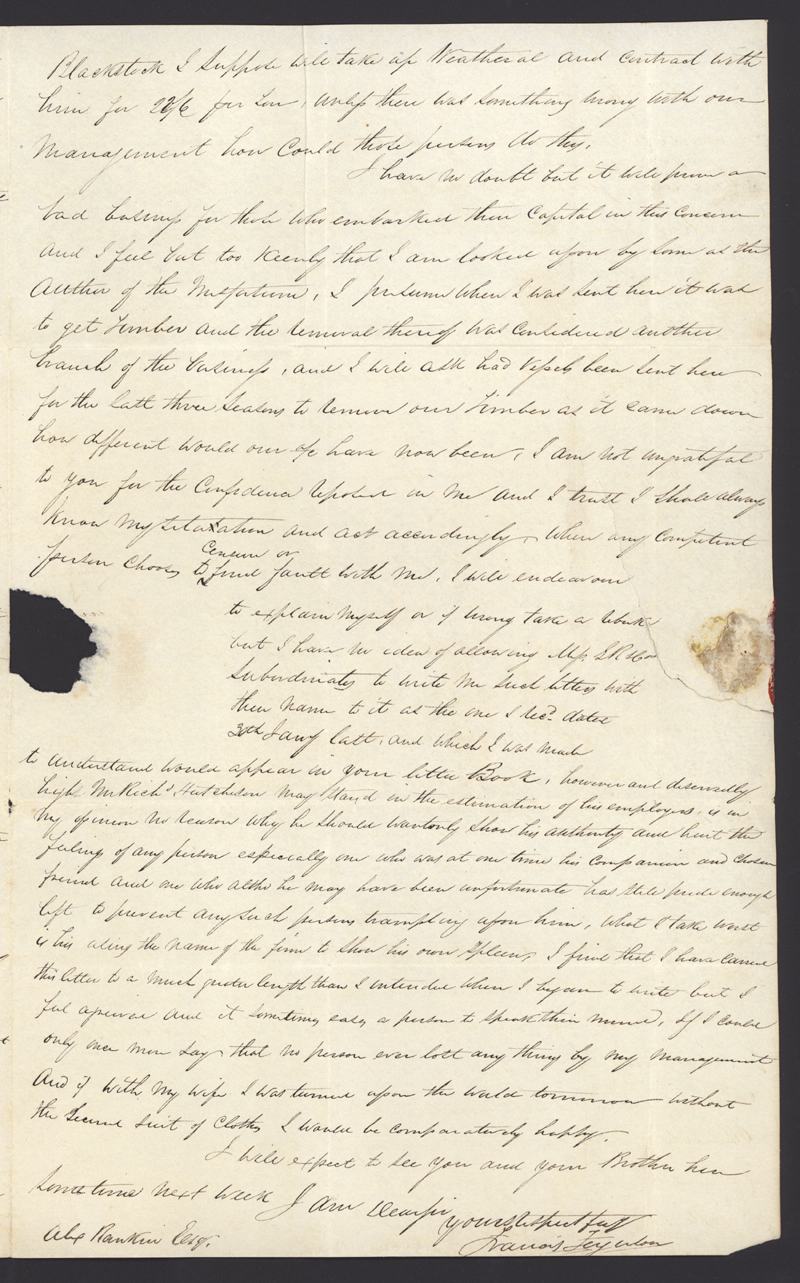 Blackstock I Suppose will take up Weatheral and Contract with
him for 22/6 per Ton, unless there was Something wrong with our
Management how Could those persons do this.
I have no doubt but it will prove a
bad business for those who embarked their Capital in this Concern
and I feel but too Keenly that I am looked upon by Some as the
Author of the Misfortune, I presume when I was Sent here it was
to get Timber and the removal thereof was Considered another
branch of the business, and I will ask had Vessels been Sent here
for the last three Seasons to remove our Timber as it Came down
how different would our a/c have now been, I am not ungrateful
to you for the Confidence reposed in me and I trust I Shall always
know my Situation and act accordingly, When any Competent
Censure or
person Chooses to find fault with me, I will endeavour
to explain myself or if wrong take a rebuke
but I have no idea of allowing Messrs
Subordinates to write me Such letters with
their name to it as the one I recd. dated
Jany last, and which I was
to understand would appear in your letter Book, however and deservedly
high Mr Richd. Hutchison may Stand in the estimation of his employers, is in
my opinion no reason why he Should wantonly Show his authority and hurt the
feelings of any person especially one who was at one time his Companion and Chosen
friend and one who altho he may have been unfortunate has Still pride enough
left to prevent any Such persons trampling upon him, What I take worst
is his using the name of the firm to Show his own Spleen, I find that I have Carried
this letter to a much greater length than I intended when I began to write but I
feel and it Sometimes eases a person to Speak their mind, If I Could
only once more Say that no person ever lost any thing by my Management
And if with my wife I was turned upon the world tomorrow without
the Second Suit of Clothes I would be Comparatively happy.
I will expect to See you and your Brother here
Sometime next week I am Dear Sir
yours respectfully
Alex Rankin Esqr. Francis Ferguson